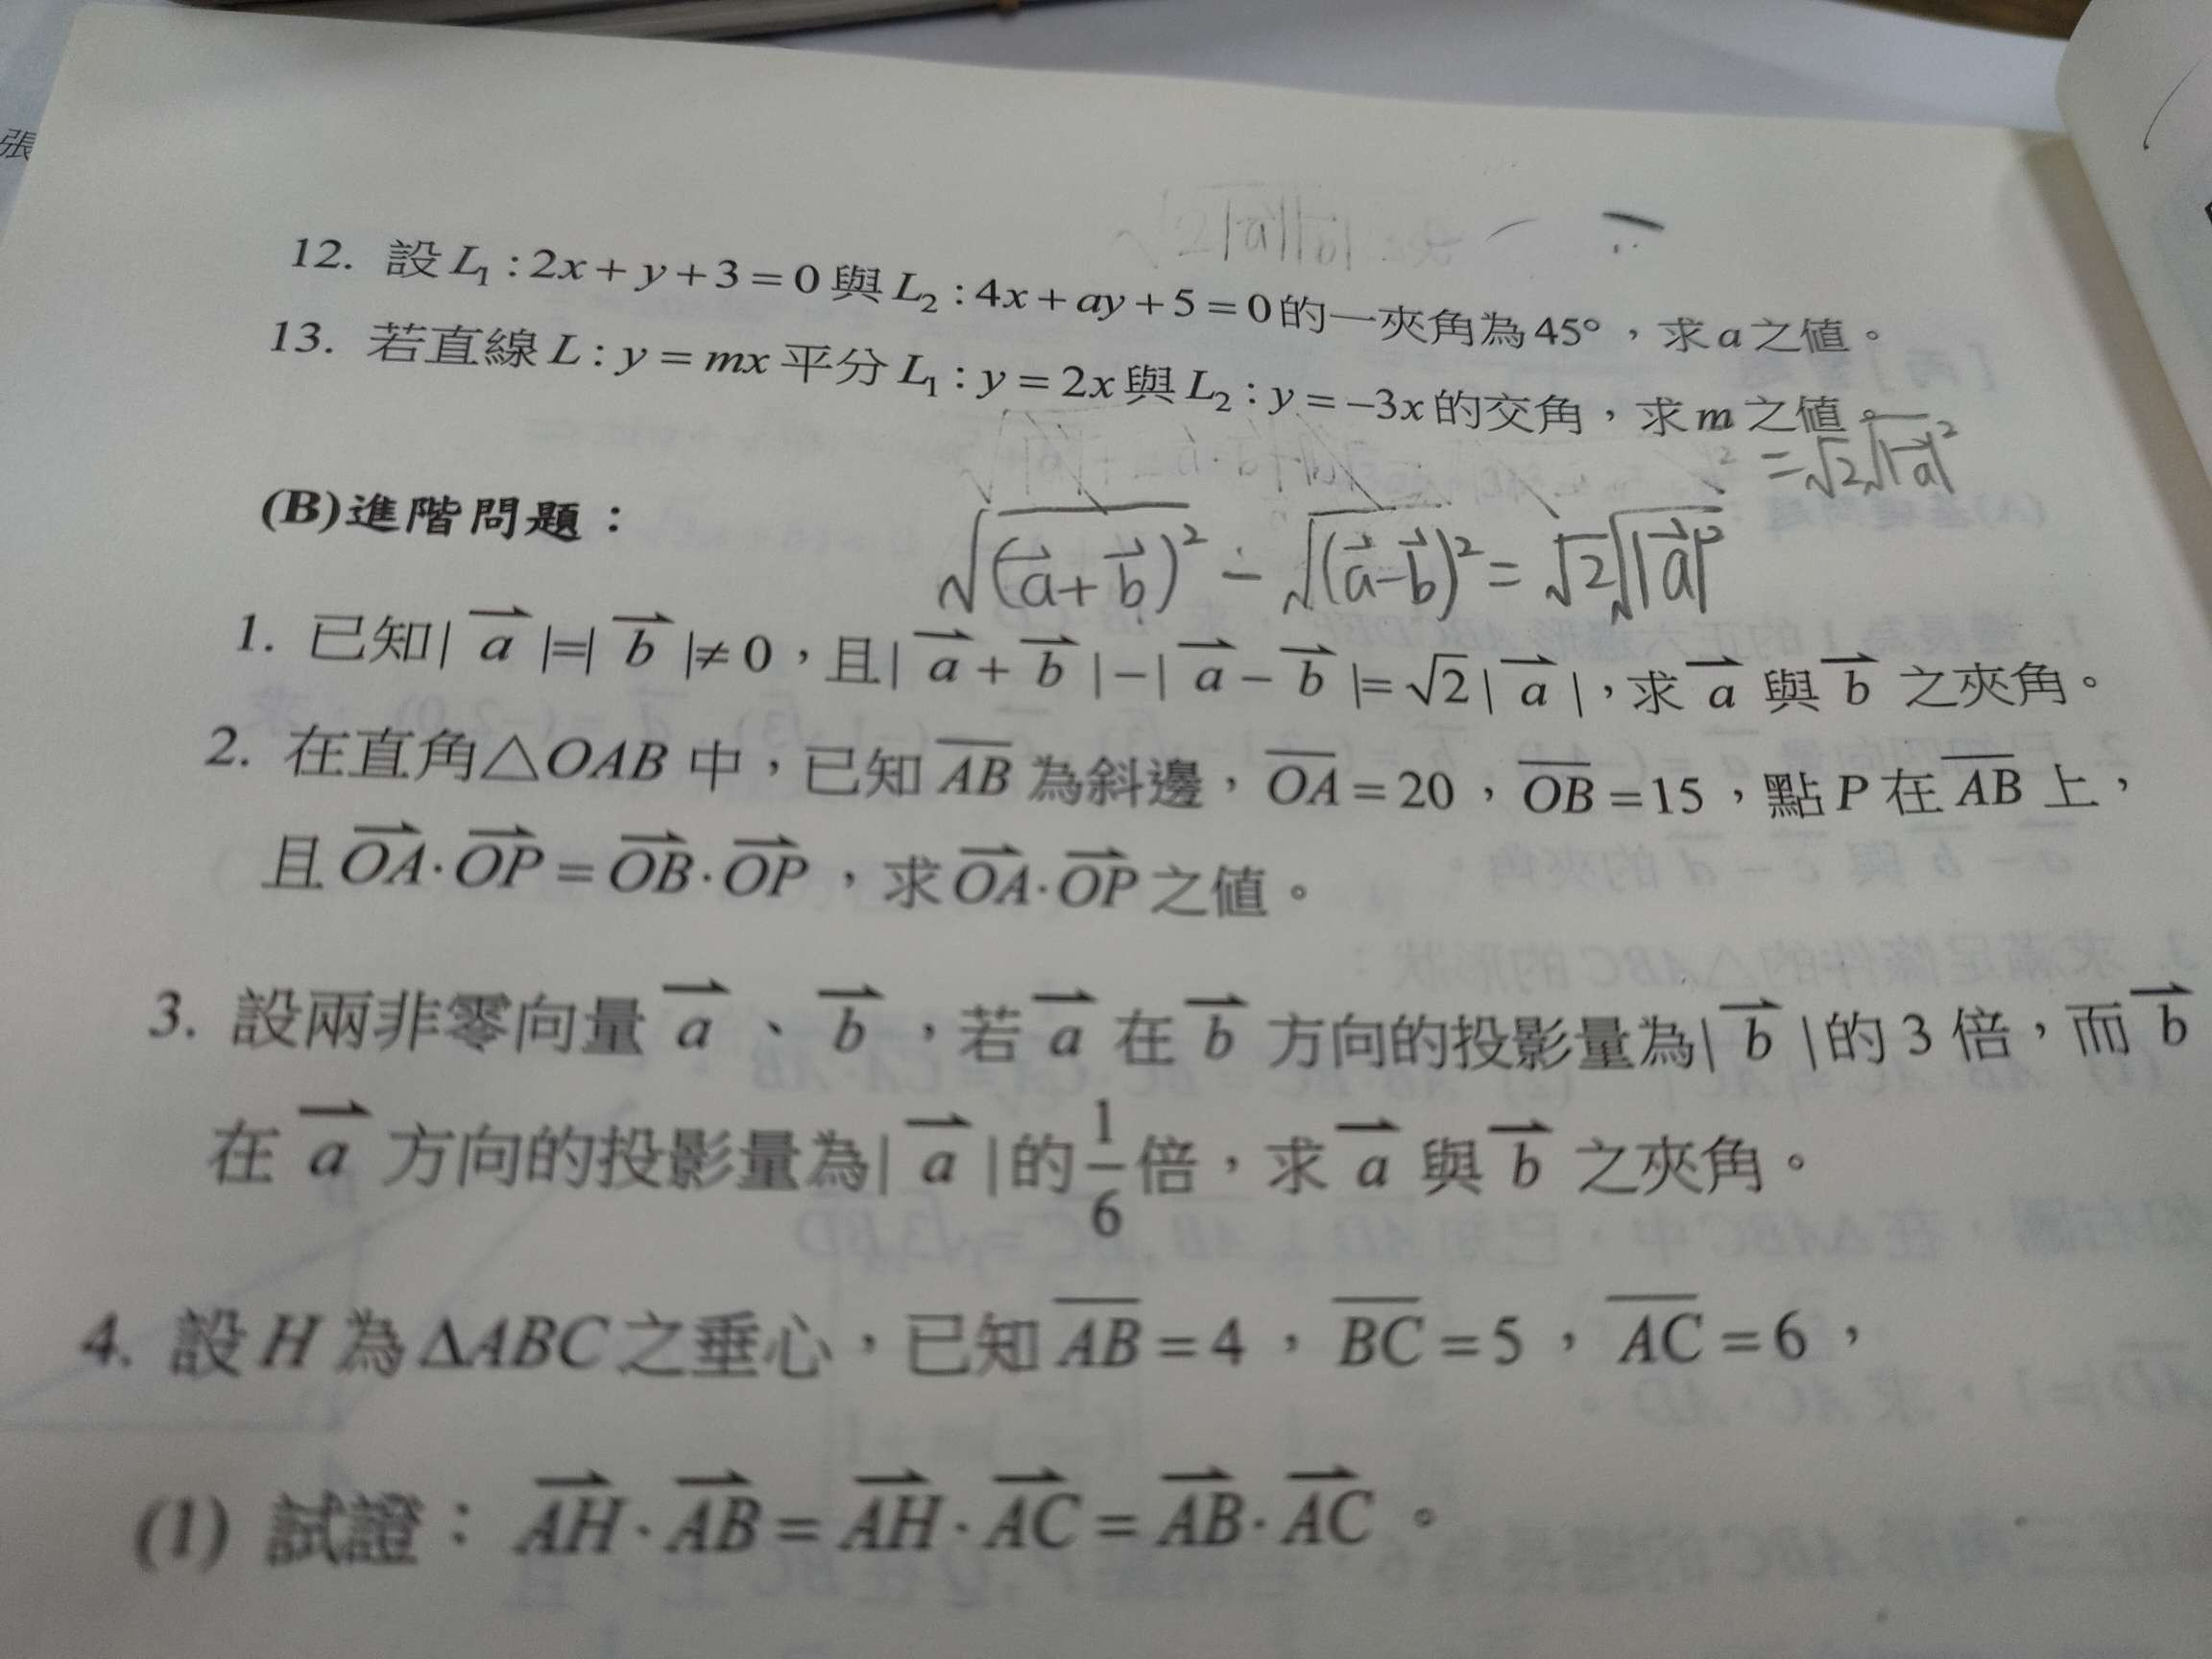 張
12. 設 L₁ : 2x + y + 3 = 0 與 L₂ : 4x + ay + 5 = 0 的一夾角為 45°，求 a 之值。
13. 若直線 L : y = mx 平分 L₁ : y = 2x 與 L₂ : y = −3x 的交角，求 m 之值。
= √2 √|a⃗|²
(B)進階問題：
√(a⃗+b⃗)² − √(a⃗−b⃗)² = √2 √|a⃗|²
1. 已知| a⃗ |=| b⃗ |≠ 0，且| a⃗ + b⃗ |−| a⃗ − b⃗ |= √2 | a⃗ |，求 a⃗ 與 b⃗ 之夾角。
2. 在直角△OAB 中，已知 A̅B̅ 為斜邊，O̅A̅ = 20，O̅B̅ = 15，點 P 在 A̅B̅ 上，
且 OA⃗ · OP⃗ = OB⃗ · OP⃗，求 OA⃗ · OP⃗ 之值。
3. 設兩非零向量 a⃗、b⃗，若 a⃗ 在 b⃗ 方向的投影量為| b⃗ |的 3 倍，而 b⃗
在 a⃗ 方向的投影量為| a⃗ |的 1/6 倍，求 a⃗ 與 b⃗ 之夾角。
4. 設 H 為 ΔABC 之垂心，已知 A̅B̅ = 4，B̅C̅ = 5，A̅C̅ = 6，
(1) 試證：AH⃗ · AB⃗ = AH⃗ · AC⃗ = AB⃗ · AC⃗。